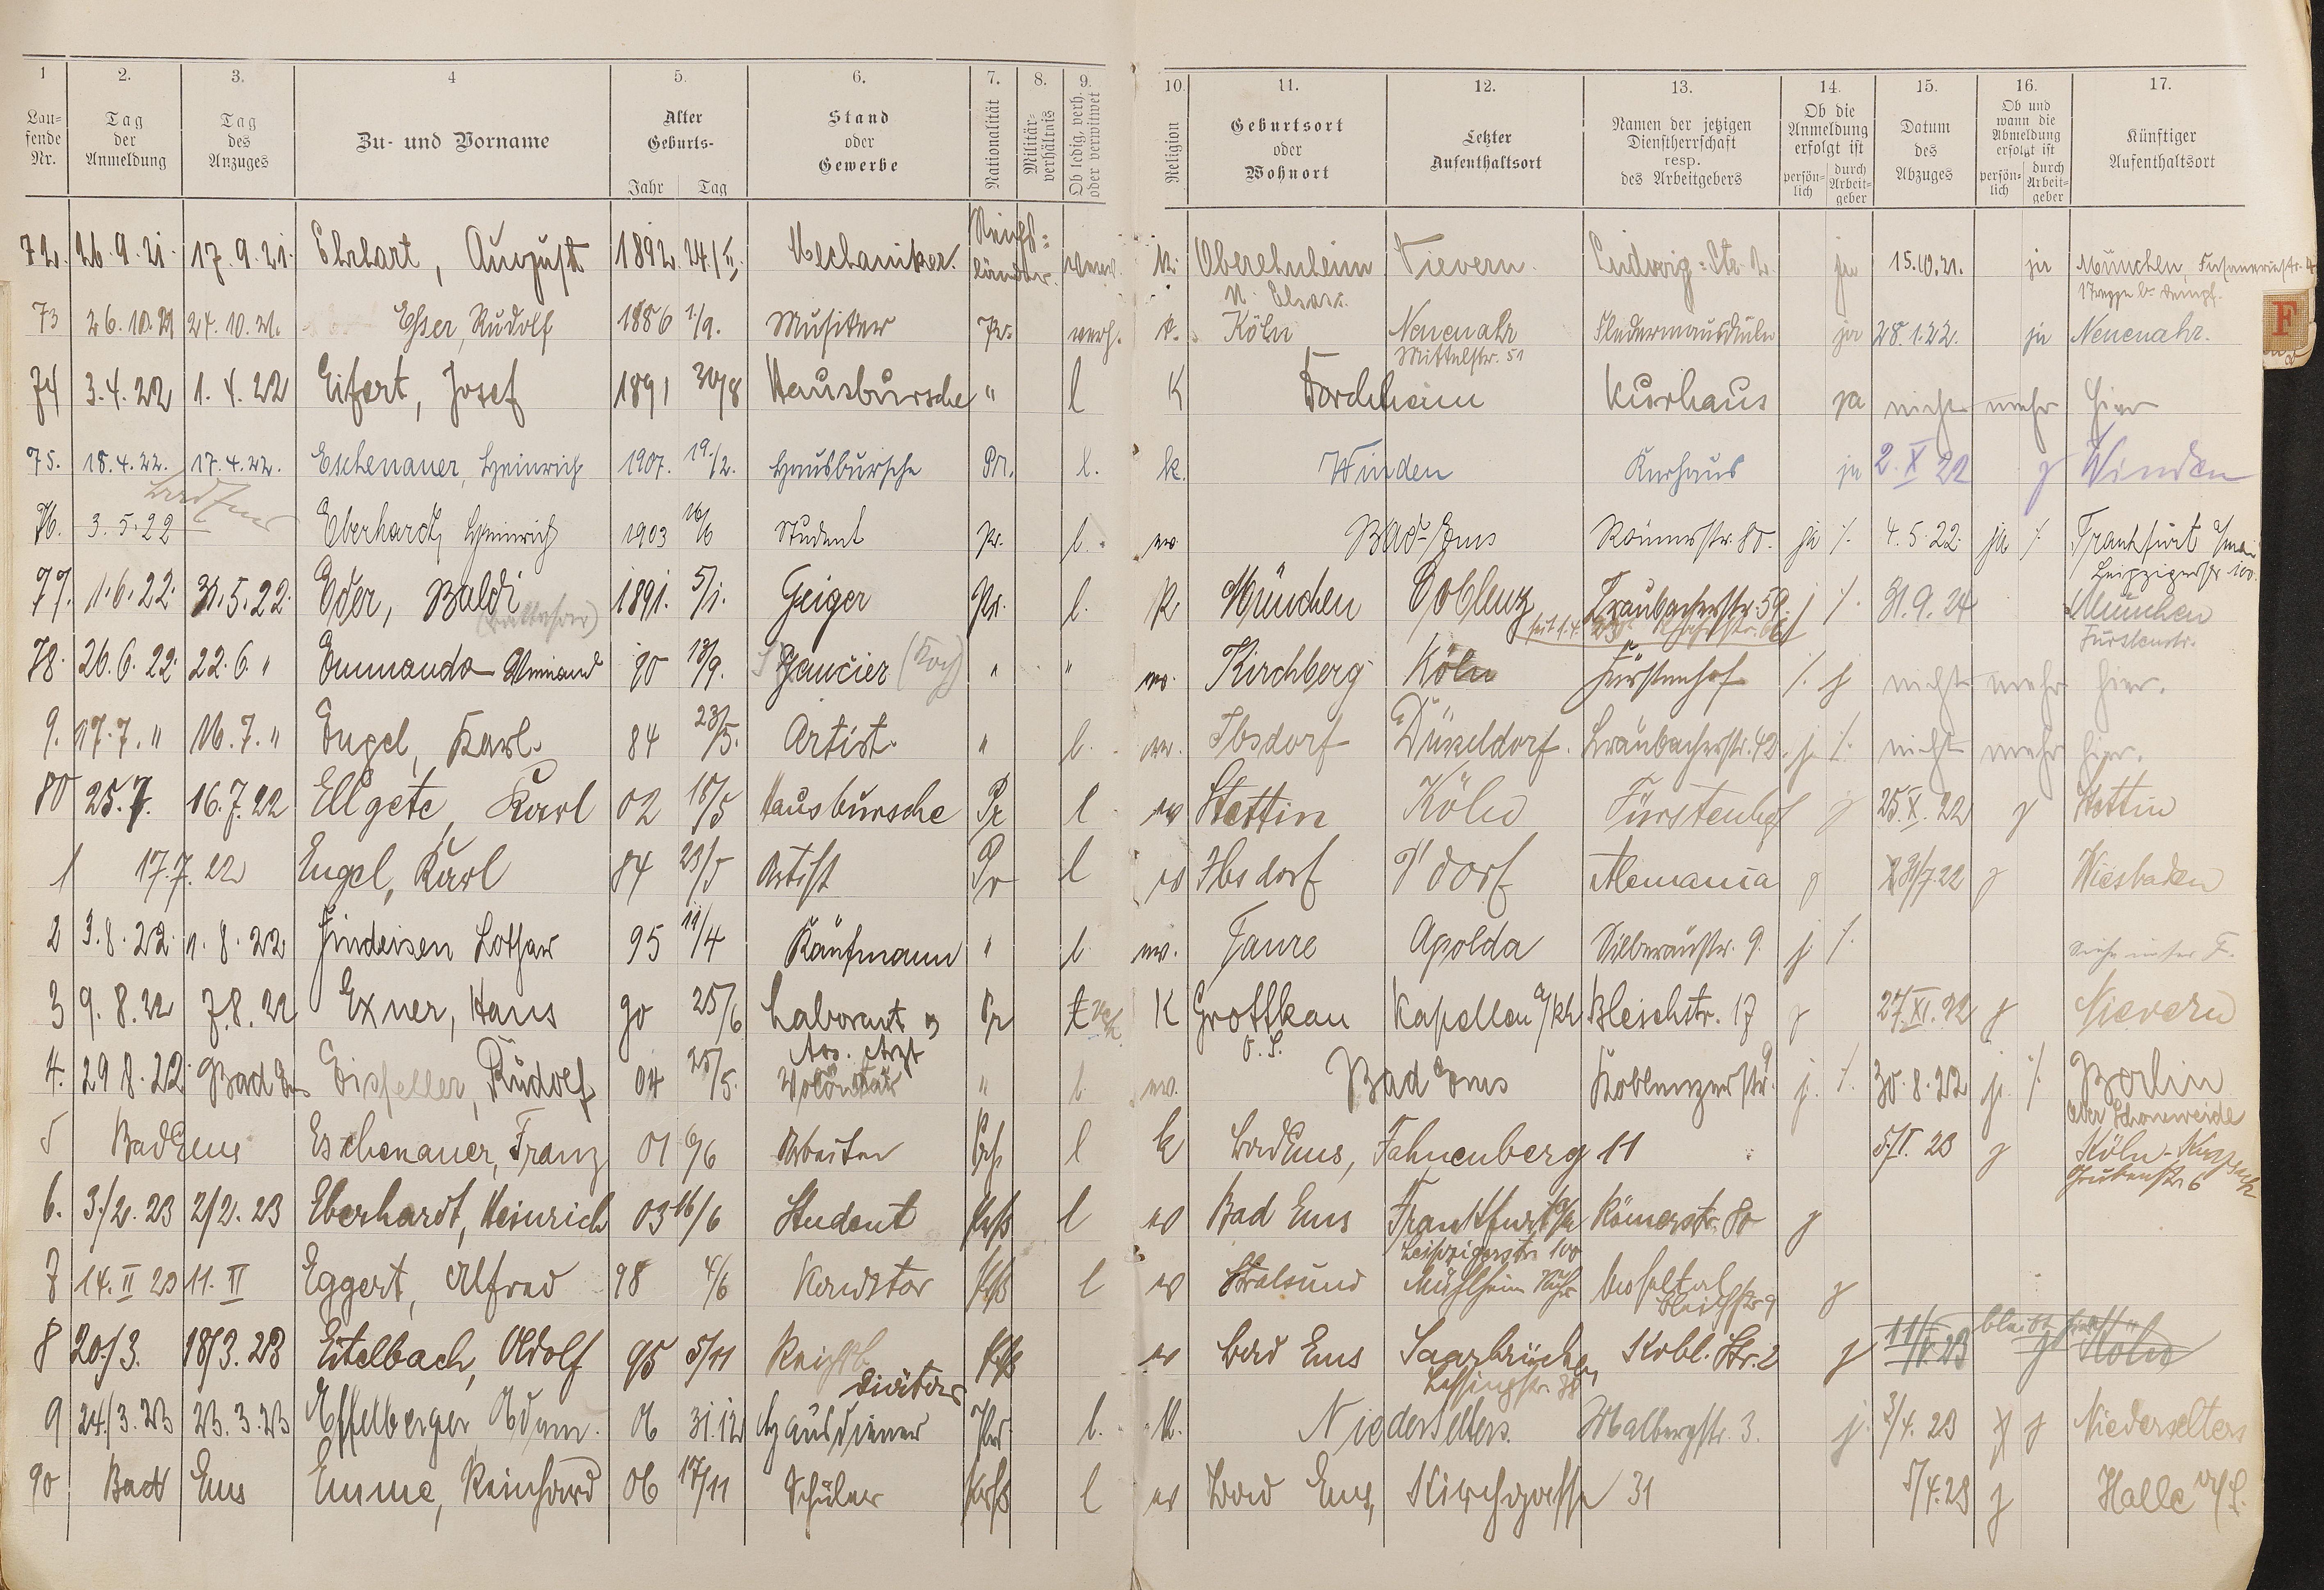 1 2. 3. 4 5. 6. 7. 8. 9. 10. 11. 12. 13. 14. 15. 16. 17.
Lau-
fende
Nr.
Tag
der
Anmeldung
Tag
des
Anzuges
Zu- und Vorname
Alter
Geburts-
Jahr Tag
Stand
oder
Gewerbe
Nationalität
Militär-
verhältnis
Ob ledig, verh.
oder verwitwet
Religion
Geburtsort
oder
Wohnort
Letzter
Aufenthaltsort
Namen der jetzigen
Dienstherrschaft
resp.
des Arbeitgebers
Ob die
Anmeldung
erfolgt ist
persön-
lich
durch
Arbeit-
geber
Datum
des
Abzuges
Ob und
wann die
Abmeldung
erfolgt ist
persön-
lich
durch
Arbeit-
geber
Künftiger
Aufenthaltsort
72. 26.9.21. 17.9.21. Ehrhart, August 1892. 24./II. Mechaniker. Reichs=
länder. k. Oberehnheim Nievern. Ludwig=Str. 2. ja 15.10.21. ja München,
U. Elsass.
73 26.10.21 24.10.21. Esser, Rudolf 1886 1./9. Musiker Pr. verh. k. Köln Neuenahr ja 28.1.22. ja Neuenahr.
Mittelstr. 51
74 3.4.22 1.4.22 Eifert, Josef 1891 30/8 Hausbursche " l K Forchheim Kurhaus ja nicht mehr hier
75. 18.4.22. 17.4.22. Eschenauer, Heinrich 1907. 19./2. Hausbursche Pr. l. k. Winden Kurhaus ja 2.X 22 j Winden
76. 3.5.22 Eberhardt, Heinrich 1903 16/6 Student Pr. l. ev. Bad-Ems Römerstr. 80. ja /. 4.5.22. ja /. Frankfurt a/main
Leipzigerstr. 100.
77. 1.6.22. 31.5.22. Eder, Baldi 1891. 5/1. Geiger Pr. l. k. München Coblenz Braubacherstr. 59. j /. 31.9.24 München
Fürstenstr.
78. 26.6.22. 22.6. " 90 13/9. Saucier (Koch) " " ev. Kirchberg Köln Fürstenhof /. j nicht mehr hier.
9. 17.7. " 16.7. " Engel, Karl. 84 23/5. Artist. " l. ev. Ibsdorf Düsseldorf. Braubacherstr. 42. j. /. nicht mehr hier.
80 25.7. 16.7.22 Ellgete, Karl 02 18/5 Hausbursche Pr l ev Stettin Köln Fürstenhof j 25.X.22 j Stettin
1 17.7.22 Engel, Karl 84 23/5 Artist Pr l ev Ibsdorf D'dorf Alemania j 31/7.22 j Wiesbaden
2 3.8.22. 1.8.22 Findeisen Lothar 95 11/4 Kaufmann " l. ev. Apolda Silberaustr. 9. j /. siehe unter F.
3 9.8.22 7.8.22 Exner, Hans 90 25/6 Laborant Pr K Grottkau Kapellen a/Rh Bleichstr. 17 j 27.XI.22 j Nievern
O.S.
Ass. Arzt
4. 29.8.22. Bad Ems Eisfeller, Rudolf 04 25/5. Volontär " l. ev. Bad Ems Koblenzerstr. 9. j. /. 30.8.22 ja. /. Berlin
Ober Schöneweide
5 Bad Ems Eschenauer, Franz 01 6/6 Arbeiter l k Bad Ems, Fahnenberg 11 5/I. 23 j Köln-
6
6. 3/2.23 2/2.23 Eberhardt, Heinrich 03 16/6 Student Prß l ev Bad Ems Frankfurt a/M Römerstr. 80 j
Leipzigerstr. 100
7 14.II 23 11.II Eggert, Alfred 98 4/6 Konditor Prß l ev Stralsund Mühlheim Ruhr j
Bleichstr 9
8 20./3. 18/3.23 Eitelbach, Adolf 95 5/11 Prß ev Bad Ems Saarbrücken Kobl. Str. 2 j 11/IV.23 bleibt hier j Köln
Lessingstr.
9 24/3.23 23.3.23 Effelberger Adam. 06 31.12 Hausdiener Pr. l. k. Niederselters. Malbergstr. 3. j. 3/4.23 j Niederselters
90 Bad Ems Emme, Reinhard 06 17/11 Schüler Prß l ev Bad Ems, Kirchgasse 31 5/4.23 j Halle a/S.
F